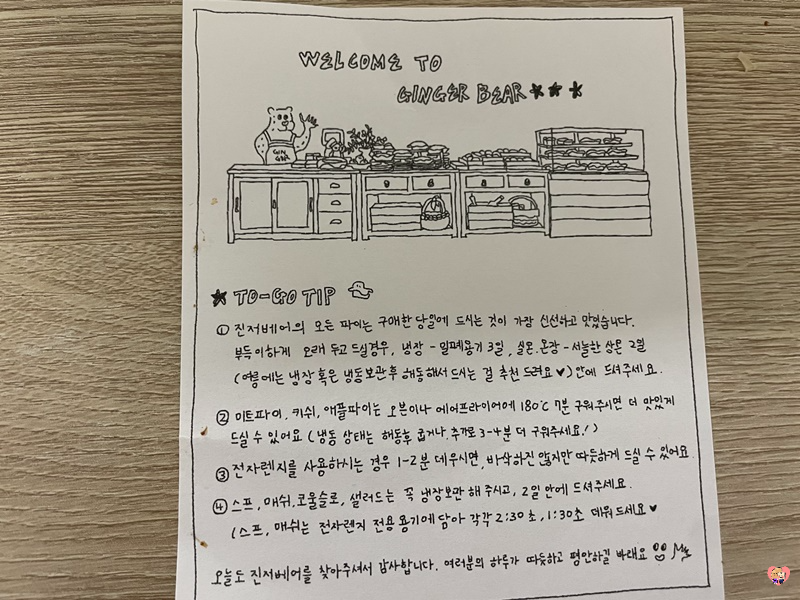 WELCOME TO
GINGER BEAR ★★★
GIN
GER
★ TO-GO TIP
① 진저베어의 모든 파이는 구매한 당일에 드시는 것이 가장 신선하고 맛있습니다.
부득이하게 오래 두고 드실경우, 냉장-밀폐용기 3일, 실온.온장-서늘한 상온 2일
(여름에는 냉장 혹은 냉동보관후 해동해서 드시는 걸 추천 드려요♥)안에 드셔주세요.
② 미트파이, 키쉬, 애플파이는 오븐이나 에어프라이어에 180℃ 7분 구워주시면 더 맛있게
드실 수 있어요 (냉동 상태는 해동후 굽거나, 추가로 3-4분 더 구워주세요!)
③ 전자렌지를 사용하시는 경우 1-2분 데우시면, 바삭하진 않지만 따듯하게 드실 수 있어요.
④ 스프, 매쉬, 코울슬로, 샐러드는 꼭 냉장보만 해 주시고, 2일 안에 드셔주세요.
(스프, 매쉬는 전자렌지 전용 용기에 담아 각각 2:30초, 1:30초 데워드세요♥
오늘도 진저베어를 찾아주셔서 감사합니다. 여러분의 하루가 따듯하고 평안하길 바래요